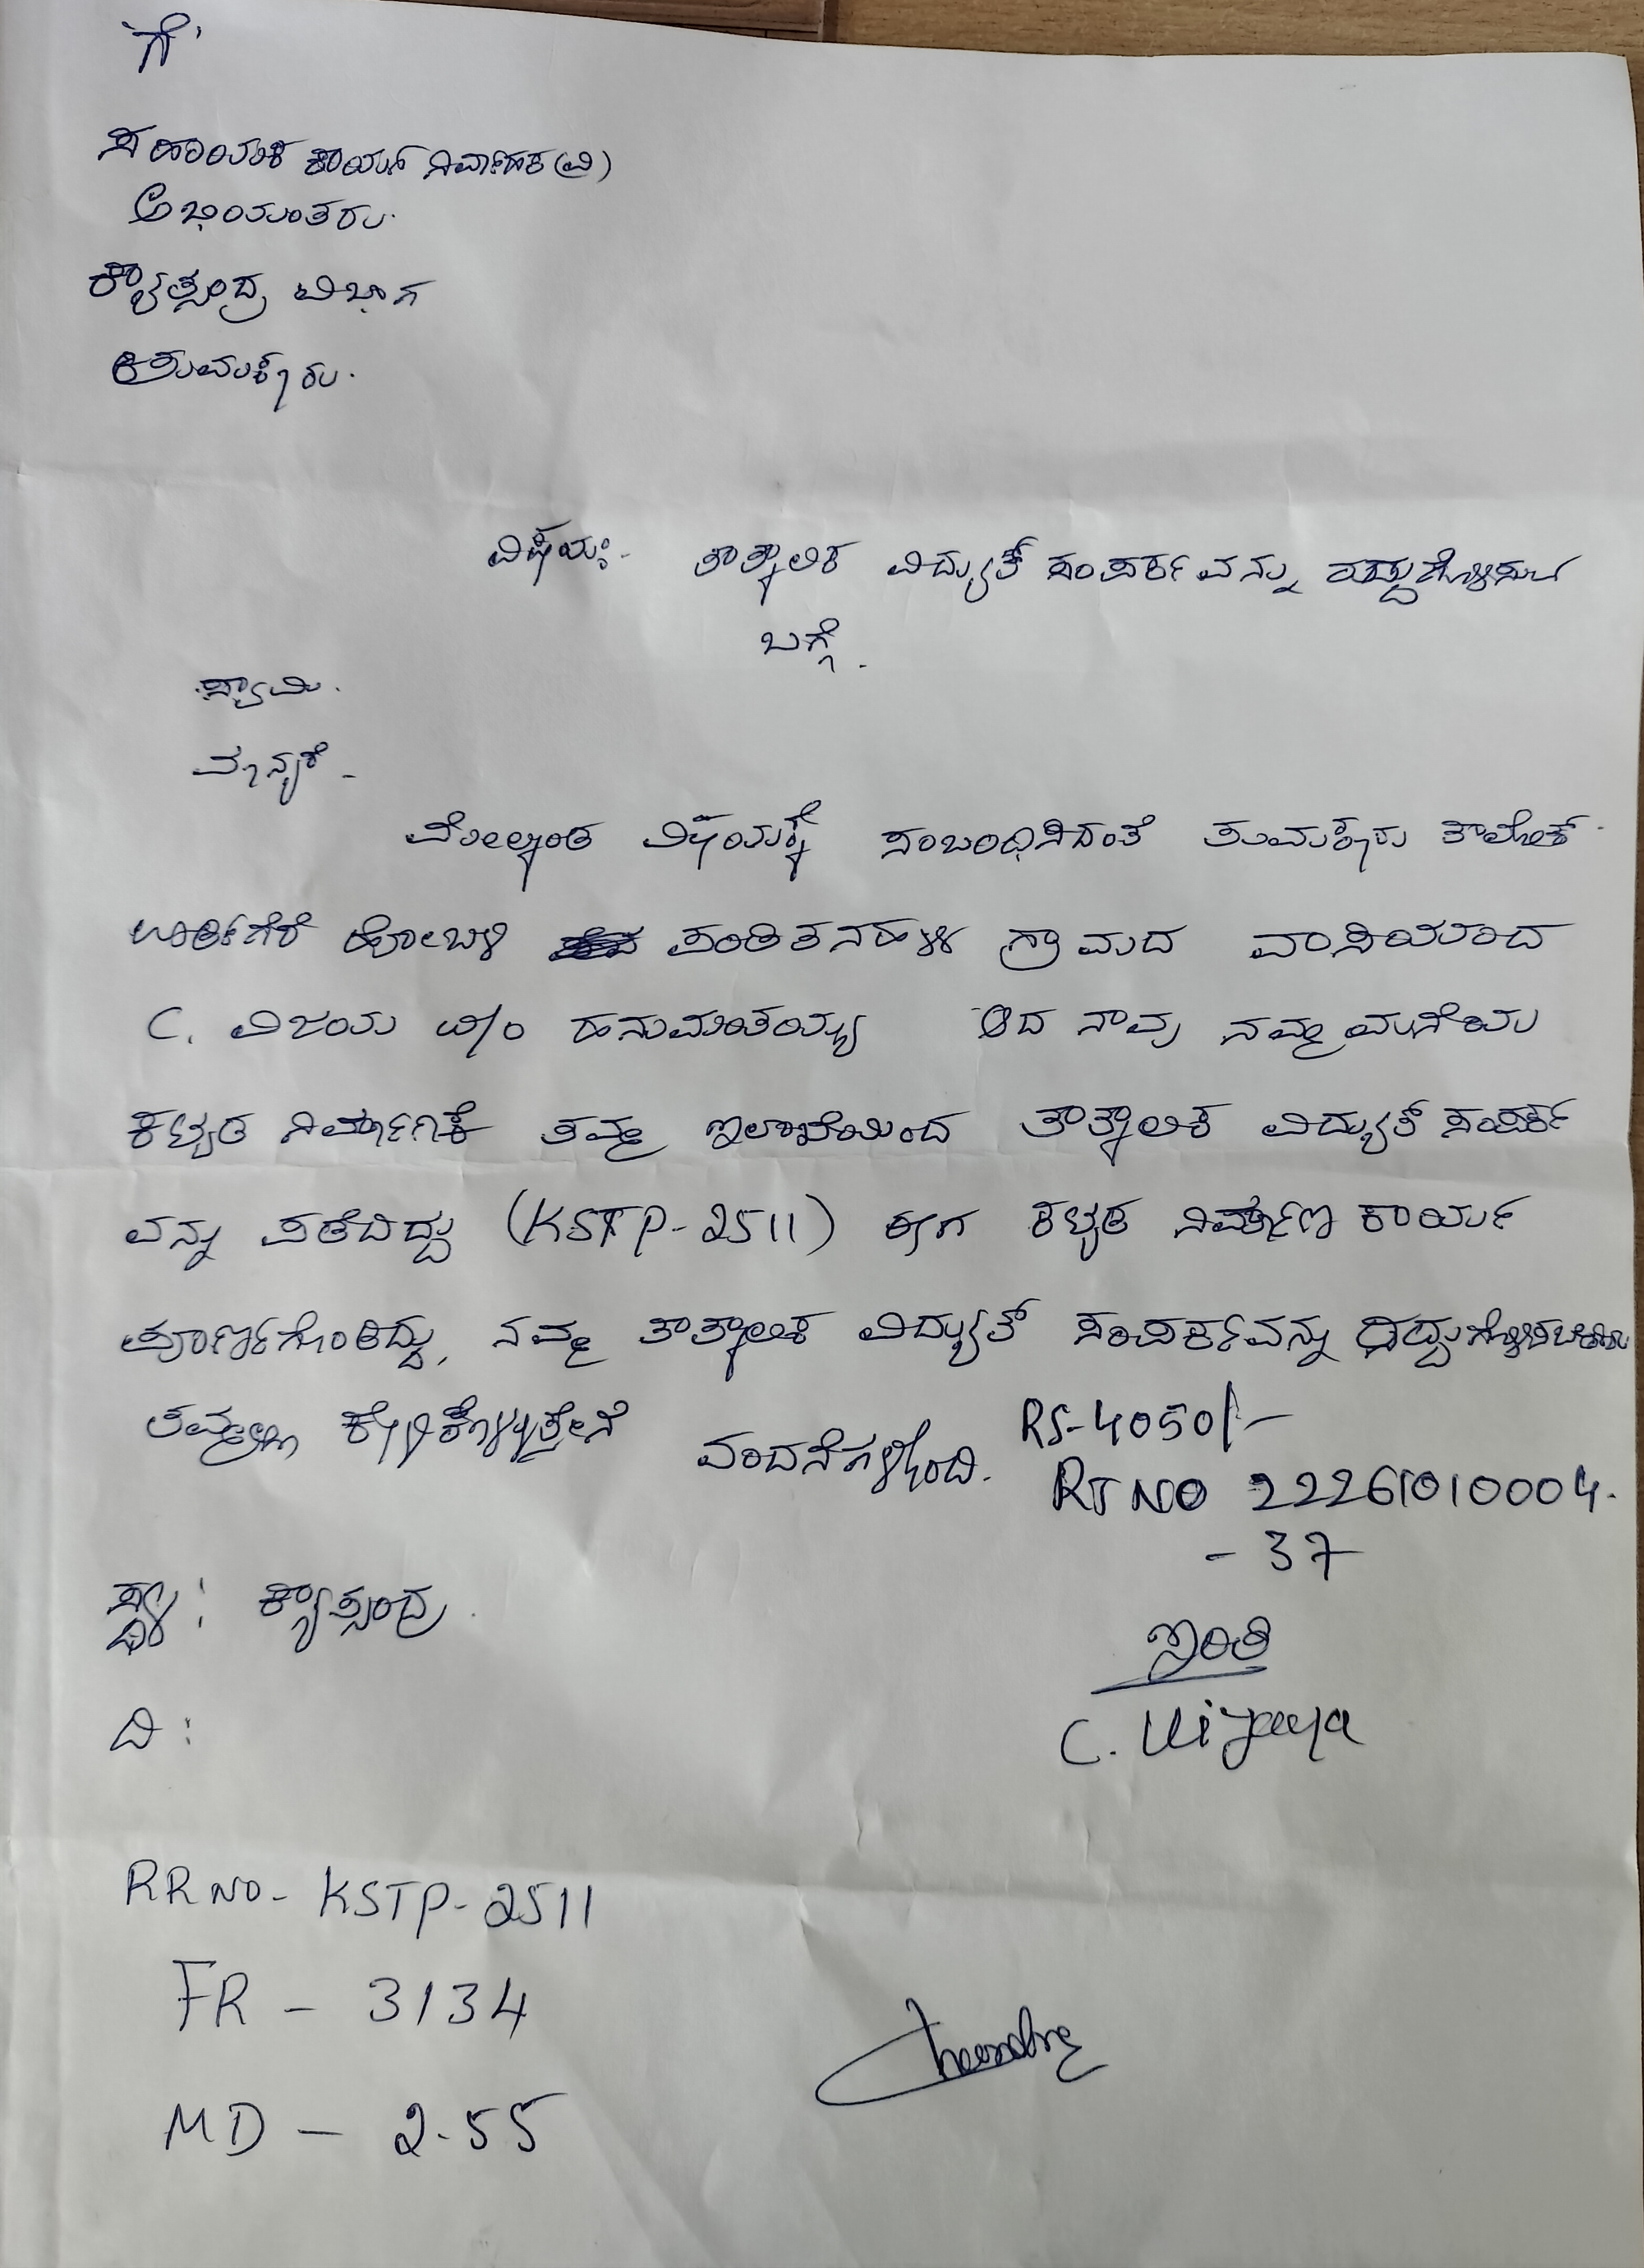 'ಗೆ'
ಸಹಾಯಕ ಕಾರ್ಯ ನಿರ್ವಾಹಕ (ವಿ)
ಅಭಿಯಂತರು.
ಕ್ಯಾತ್ಸಂದ್ರ ವಿಭಾಗ
ತುಮಕೂರು.
ವಿಷಯ:- ತಾತ್ಕಾಲಿಕ ವಿದ್ಯುತ್ ಸಂಪರ್ಕವನ್ನು ರದ್ದುಗೊಳಿಸುವ
ಬಗ್ಗೆ.
ಸ್ವಾಮಿ.
ಮಾನ್ಯರೆ -
ಮೇಲ್ಕಂಡ ವಿಷಯಕ್ಕೆ ಸಂಬಂಧಿಸಿದಂತೆ ತುಮಕೂರು ತಾಲೋಕ್
ಊರ್ಡಿಗೆರೆ ಹೋಬಳಿ ಪಂಡಿತನಹಳ್ಳಿ ಗ್ರಾಮದ ವಾಸಿಯಾದ
C. ವಿಜಯ W/O ಹನುಮಂತಯ್ಯ ಆದ ನಾವು ನಮ್ಮ ಮನೆಯ
ಕಟ್ಟಡ ನಿರ್ಮಾಣಕ್ಕೆ ತಮ್ಮ ಇಲಾಖೆಯಿಂದ ತಾತ್ಕಾಲಿಕ ವಿದ್ಯುತ್ ಸಂಪರ್ಕ
ವನ್ನು ಪಡೆದಿದ್ದು (KSTP-2511) ಈಗ ಕಟ್ಟಡ ನಿರ್ಮಾಣ ಕಾರ್ಯ
ಪೂರ್ಣಗೊಂಡಿದ್ದು, ನಮ್ಮ ತಾತ್ಕಾಲಿಕ ವಿದ್ಯುತ್ ಸಂಪರ್ಕವನ್ನು ರದ್ದುಗೊಳಿಸಬೇಕೆಂದು
ತಮ್ಮಲ್ಲಿ ಕೇಳಿಕೊಳ್ಳುತ್ತೇನೆ ವಂದನೆಗಳೊಂದಿ.
RS-4050/-
RT NO 22261010004.
- 37
ಸ್ಥಳ : ಕ್ಯಾತ್ಸಂದ್ರ
ಇಂತಿ
ದಿ :
C. Vijaya
RR NO- KSTP-2511
FR - 3134
MD - 2.55